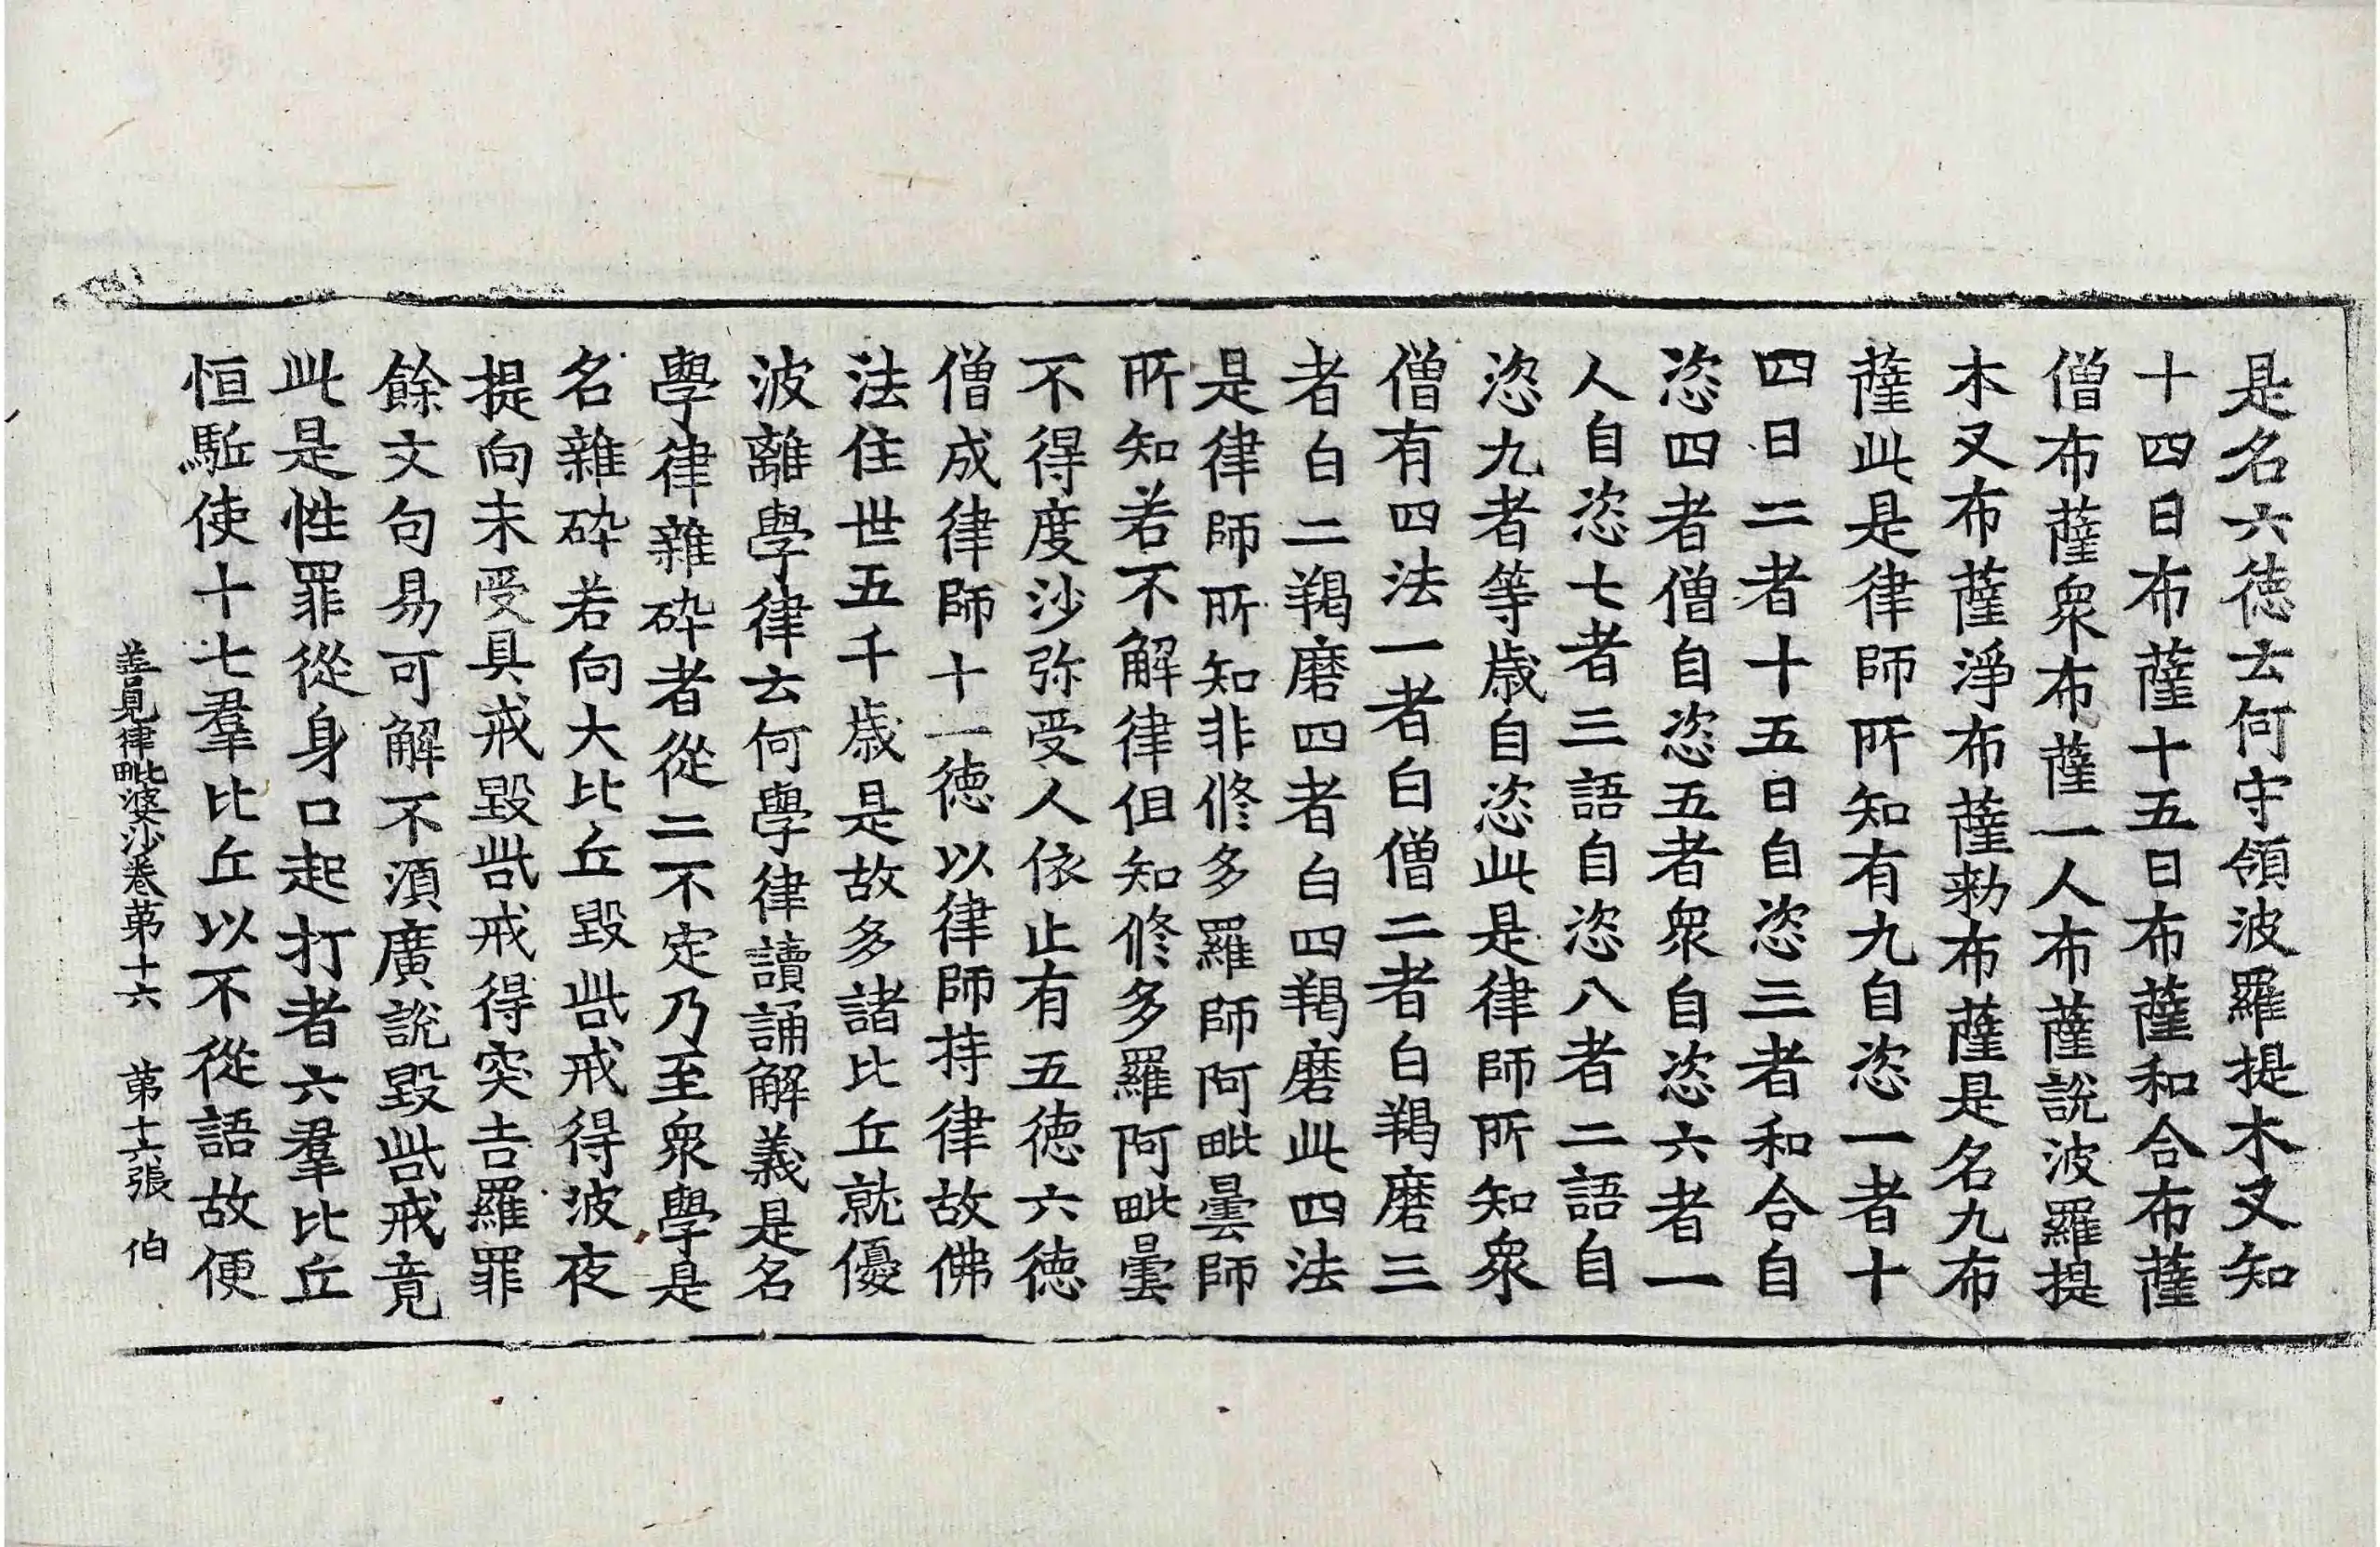 是名六徳云何守領波羅提木叉知
十四日布薩十五日布薩和合布薩
僧布薩衆布薩一人布薩說波羅提
木叉布薩淨布薩勑布薩是名九布
薩此是律師所知有九自恣一者十
四日二者十五日自恣三者和合自
恣四者僧自恣五者衆自恣六者一
人自恣七者三語自恣八者二語自
恣九者等歲自恣此是律師所知衆
僧有四法一者白僧二者白羯磨三
者白二羯磨四者白四羯磨此四法
是律師所知非修多羅師阿毗曇師
所知若不解律但知修多羅阿毗曇
不得度沙弥受人依止有五徳六徳
僧成律師十一徳以律師持律故佛
法住世五千歲是故多諸比丘就優
波離學律云何學律讀誦解義是名
學律雜碎者從二不定乃至衆學是
名雜碎若向大比丘毀呰戒得波夜
提向未受具戒毀呰戒得突吉羅罪
餘文句易可解不湏廣說毀呰戒竟
此是性罪從身口起打者六羣比丘
恒駈使十七羣比丘以不從語故便
善見律毗婆沙卷苐十六 苐十六張 伯